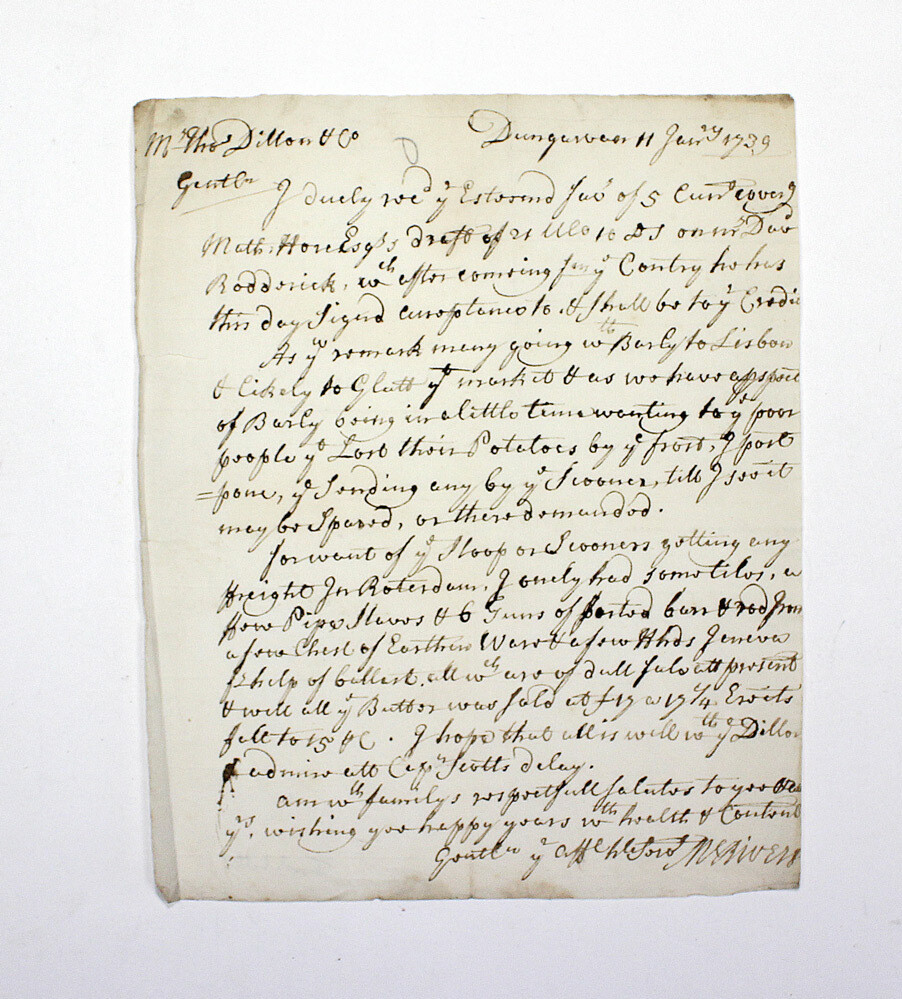 Mr Thos Dillon & Co Dungarvan 11 Janry 1739
Gentln
I duely reced ye Esteemd favr of 5 Currt covering
Math: Hore Esqrs draft of on mr Davd
Rodderick, wch after comeing from ye Contry he has
this day Signd acceptance to & shall be to yr Credit
As yo remark many going wth Barly to Lisbon
& likely to Glutt yt market & as we have a
of Barly being in a little time wanting to ye poor
people yt Lost their Potatoes by ye frost, I post
=pone, ye Sending any by ye Scooner, till I see it
may be Spared, or there demanded.
for want of ye Sloop or Scooners getting any
freight In Roterdam, I onely had some tiles, a
few Pipe Staves & 6 Tuns of sorted barr & rod Iron
a few Chest of Earthen Ware & a few Hhds Jeneva
help of ballest. all wch are of dull sale att present
& well all ye Butter was sold at £17 a 17¼ Ere its
fall to 15 . I hope that all is well wth ye Dillon
& admire att Capn Scotts delay.
am wth familys respectfull salutes to yoo &
yrs, wishing yoo happy years wth health & Content
Gentln yr affte